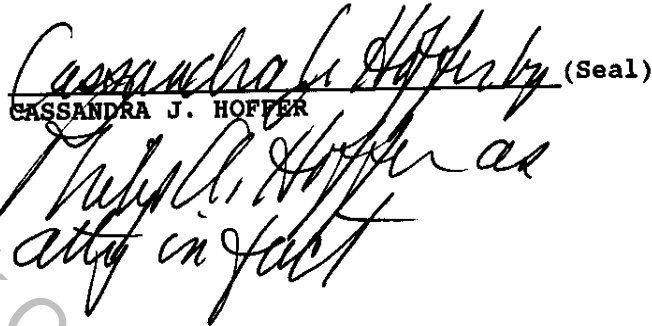 Cassandra J. Hoffer by (Seal)
CASSANDRA J. HOFFER
A. Hoffer as
atty in fact